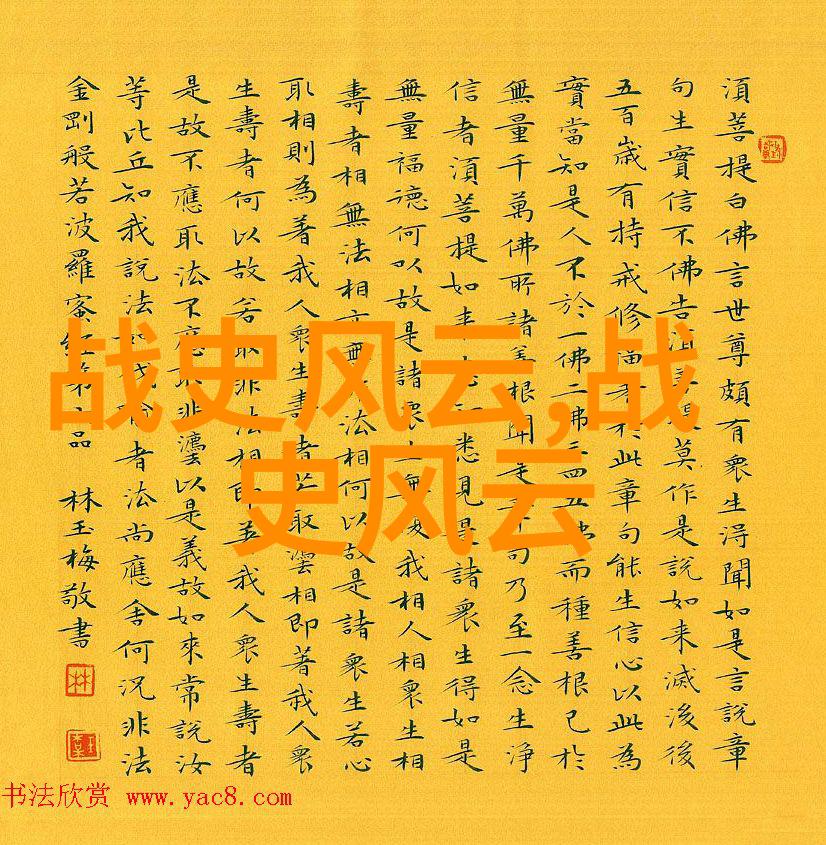 須菩提白佛言世尊頗有衆生淂聞如是言說章
句生實信不佛告須菩提莫作是說如来滅後後
五百歲有持戒修福者於此章句能生信心以此為
實當知是人不於一佛二佛三四五佛而種善根已於
無量千萬佛所諸善根聞是章句乃至一念生淨
信者須菩提如来悉知悉見是諸衆生得如是
無量福德何以故是諸衆生無復我相人相衆生相
壽者相無法相亦無非法相何以故是諸衆生若心
取相則為著我人衆生壽者若取灋相即著我人衆
生壽者何以故若取非法相即著我人衆生壽者
是故不應取法不應取非灋以是義故如來常說汝
等比丘知我說法如筏喻者法尚應舍何况非法
金剛般若波羅蜜經第品 林玉梅敬書
战史风云,战
史风云
书法欣赏 www.yac8.com